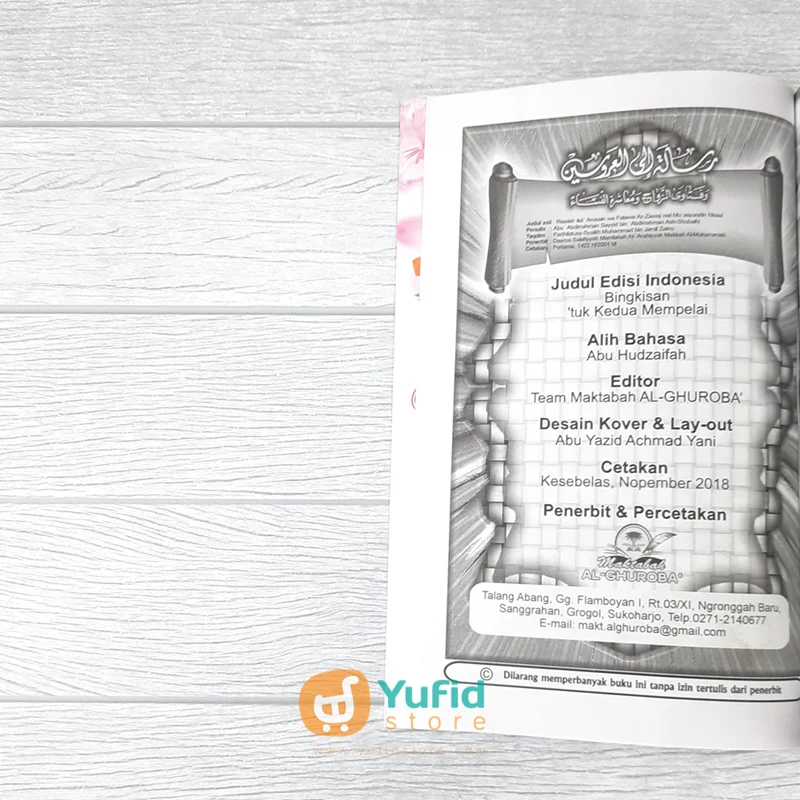 رسالة إلى العروسين
وفتاوى الزواج ومعاشرة النساء
Judul asli : Risalah ilal 'Arusain wa Fatawa Az-Zawaj wal Mu'asyaratin Nisaa'
Penulis : Abu 'Abdirrahman Sayyid bin 'Abdirrahman Ash-Shubaihi
Taqdim : Fadhilatusy-Syaikh Muhammad bin Jamil Zainu
Penerbit : Daarus Salafiyyah Mamlakah Al-'Arabiyyah Makkah Al-Mukarramah
Cetakan : Pertama, 1422 H/2001 M
Judul Edisi Indonesia
Bingkisan
'tuk Kedua Mempelai
Alih Bahasa
Abu Hudzaifah
Editor
Team Maktabah AL-GHUROBA'
Desain Kover & Lay-out
Abu Yazid Achmad Yani
Cetakan
Kesebelas, Nopember 2018
Penerbit & Percetakan
Maktabah
AL-GHUROBA'
Talang Abang, Gg. Flamboyan I, Rt.03/XI, Ngronggah Baru,
Sanggrahan, Grogol, Sukoharjo, Telp.0271-2140677
E-mail: makt.alghuroba@gmail.com
© Dilarang memperbanyak buku ini tanpa izin tertulis dari penerbit
Yufid
store
www.yufidstore.com